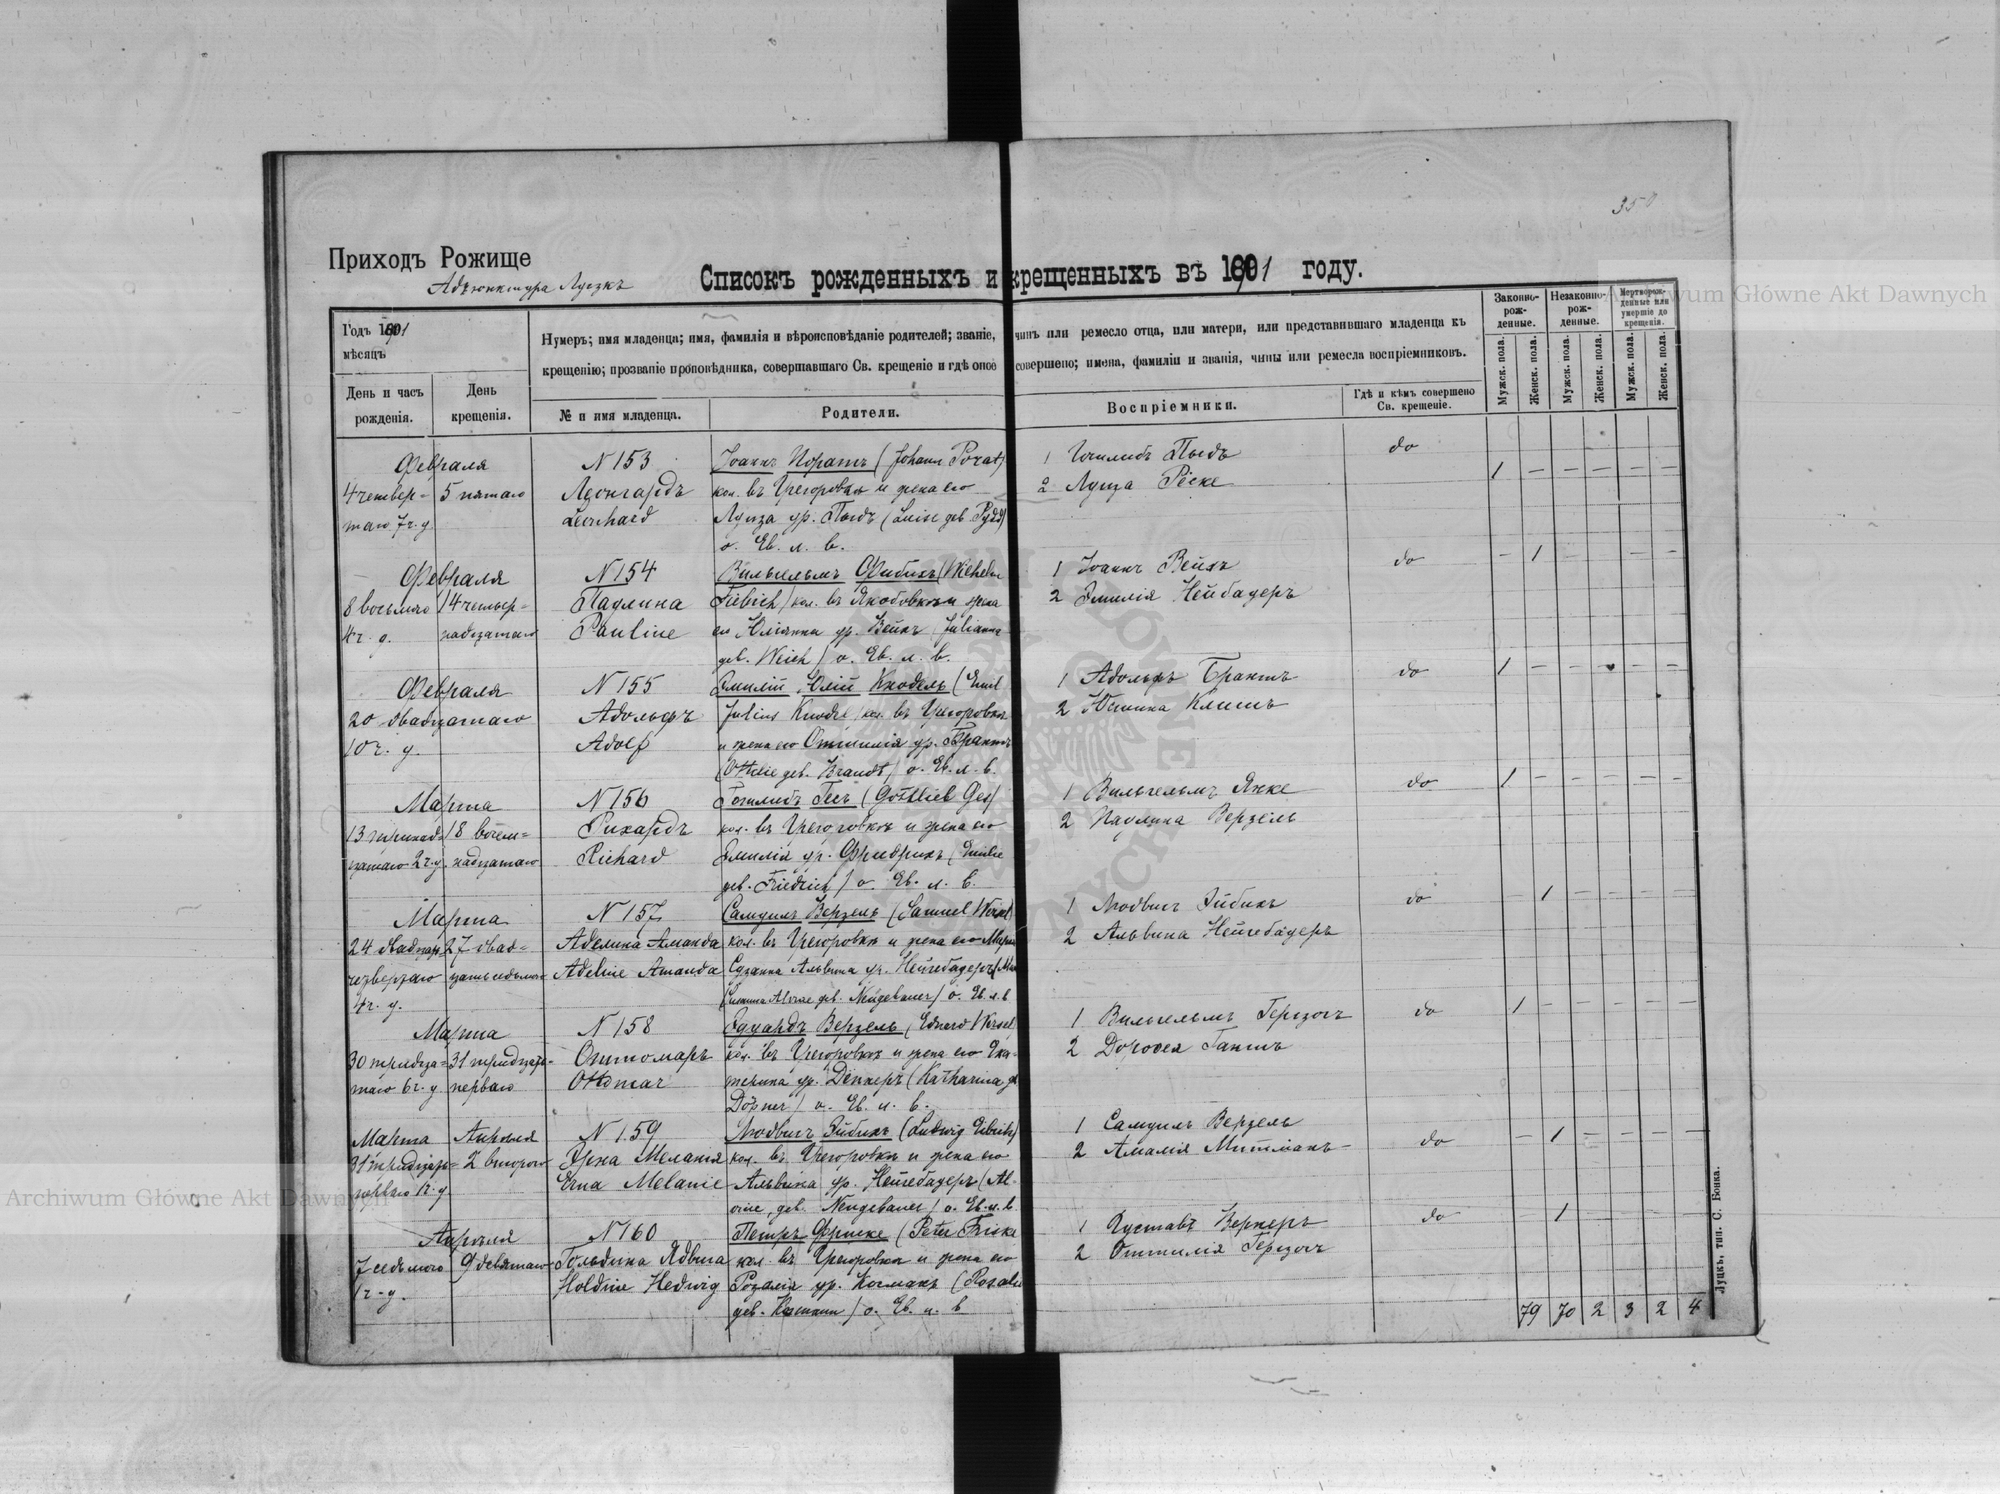 350
Приходъ Рожище
Адъюнктура Луцкъ
Списокъ рожденныхъ и крещенныхъ въ 1891 году.
Годъ 1891
мѣсяцъ
День и часъ рожденія.
День крещенія.
Нумеръ; имя младенца; имя, фамилія и вѣроисповѣданіе родителей; званіе, чинъ или ремесло отца, или матери, или представившаго младенца къ
крещенію; прозваніе проповѣдника, совершавшаго Св. крещеніе и гдѣ оное совершено; имена, фамиліи и званія, чины или ремесла воспріемниковъ.
№ и имя младенца.
Родители.
Воспріемники.
Гдѣ и кѣмъ совершено
Св. крещеніе.
Законно-рож-денные.
Незаконно-рож-денные.
Мертворож-денные или умершіе до крещенія.
Мужск. пола.
Женск. пола.
Мужск. пола.
Женск. пола.
Мужск. пола.
Женск. пола.
Февраля
4 четвер=
таго 7 ч. у.
5 пятаго
N 153
Леонгардъ
Leonhard
Іоаннъ Поратъ (Johann Porat)
кол. въ Грегоровкѣ и жена его
Луиза ур. (Luise дев.
о. Ев. л. в.
1 Готлибъ
2 Луиза Реске
do
1 — — — — —
Февраля
8 восьмаго
4 ч. у.
14 четыр=
надцатаго
N 154
Паулина
Pauline
Вильгельмъ Фибихъ (Wilhelm
Fiebich) кол. въ Якобовкѣ и жена
его Юліанна ур. Вейхъ (Julianna
дев. Weich) о. Ев. л. в.
1 Іоаннъ Вейхъ
2 Эмилія Нейбауеръ
do
— 1 — — — —
Февраля
20 двадцатаго
10 ч. у.
N 155
Адольфъ
Adolf
Эмилій Юлій Кнодель (Emil
Julius Knodel) кол. въ Грегоровкѣ
и жена его Оттилія ур. Брантъ
(Ottilie дев. Brandt) о. Ев. л. в.
1 Адольфъ Брантъ
2
do
1 — — — — —
Марта
13 тринад=
цатаго 2 ч. у.
18 восем=
надцатаго
N 156
Рихардъ
Richard
Готлибъ Гесъ (Gottlieb Ges)
кол. въ Грегоровкѣ и жена его
Эмилія ур. Фридрихъ (Emilie
дев. Friedrich) о. Ев. л. в.
1 Вильгельмъ Янке
2 Паулина Верзель
do
1 — — — — —
Марта
24 двадцать
четвертаго
4 ч. у.
27 двад=
цать седьмаго
N 157
Аделина Аманда
Adeline Amanda
Самуилъ Верзель (Samuel Wersel)
кол. въ Грегоровкѣ и жена его
Сузанна Альвина ур. Нейгебауеръ
дев. Neugebauer) о. Ев. л. в.
1 Людвигъ Эйбихъ
2 Альвина Нейгебауеръ
do
— 1 — — — —
Марта
30 тридца=
таго 6 ч. у.
31 тридцать
перваго
N 158
Оттомаръ
Ottomar
Эдуардъ Верзель (Eduard Wersel
кол. въ Грегоровкѣ и жена его Ека=
терина ур. (Katharina
о. Ев. л. в.
1 Вильгельмъ Герцогъ
2 Доротея
do
1 — — — — —
Марта
31 тридцать
перваго 1 ч. у.
Апрѣля
2 второго
N 159
Эрна Меланія
Erna Melanie
Людвигъ Эйбихъ (Ludwig Eibich)
кол. въ Грегоровкѣ и жена его
Альвина ур. Нейгебауеръ (Al-
vine, дев. Neugebauer) о. Ев. л. в.
1 Самуилъ Верзель
2 Амалія Митманъ
do
— 1 — — — —
Апрѣля
7 седьмого
1 ч. у.
9 девятаго
N 160
Гольдина Ядвига
Holdine Hedwig
Петръ Фриске (Peter Friske
кол. въ Грегоровкѣ и жена его
Розалія ур. (Rosalie
дев. о. Ев. л. в.
1 Густавъ Вернеръ
2 Оттилія Герцогъ
do
1 — — — —
79 70 2 3 2 4
Луцкъ, тип. С. Бонка.
Archiwum Główne Akt Dawnych
Archiwum Główne Akt Dawnych